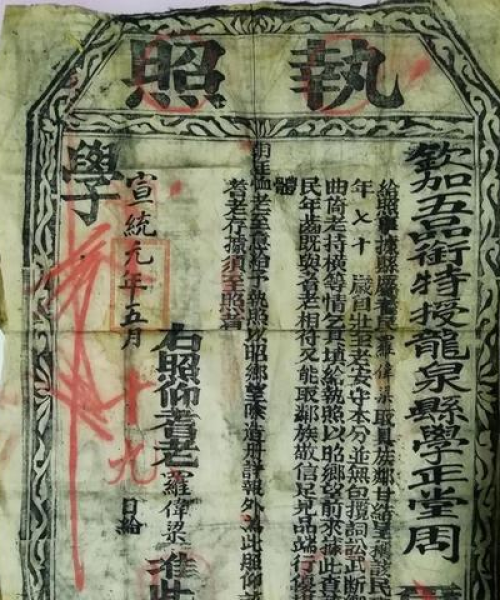 執照
欽加五品銜特授龍泉縣學正堂周
給照事據縣屬耆民羅偉梁取具族鄰甘結呈稱該民
年七十歲自壯至老安守本分並無包攬詞訟武斷
曲倚老持橫等情乞填給執照以昭鄉望前來據此查
民年齒既與耆老相待又能取鄰族敬信足見品端行優
體
朝廷恤老至意給予執照以昭鄉望除造冊詳報外為此照仰
耆老存據須至照者
右照仰耆老羅偉梁准此
宣統元年五月十九日給
學